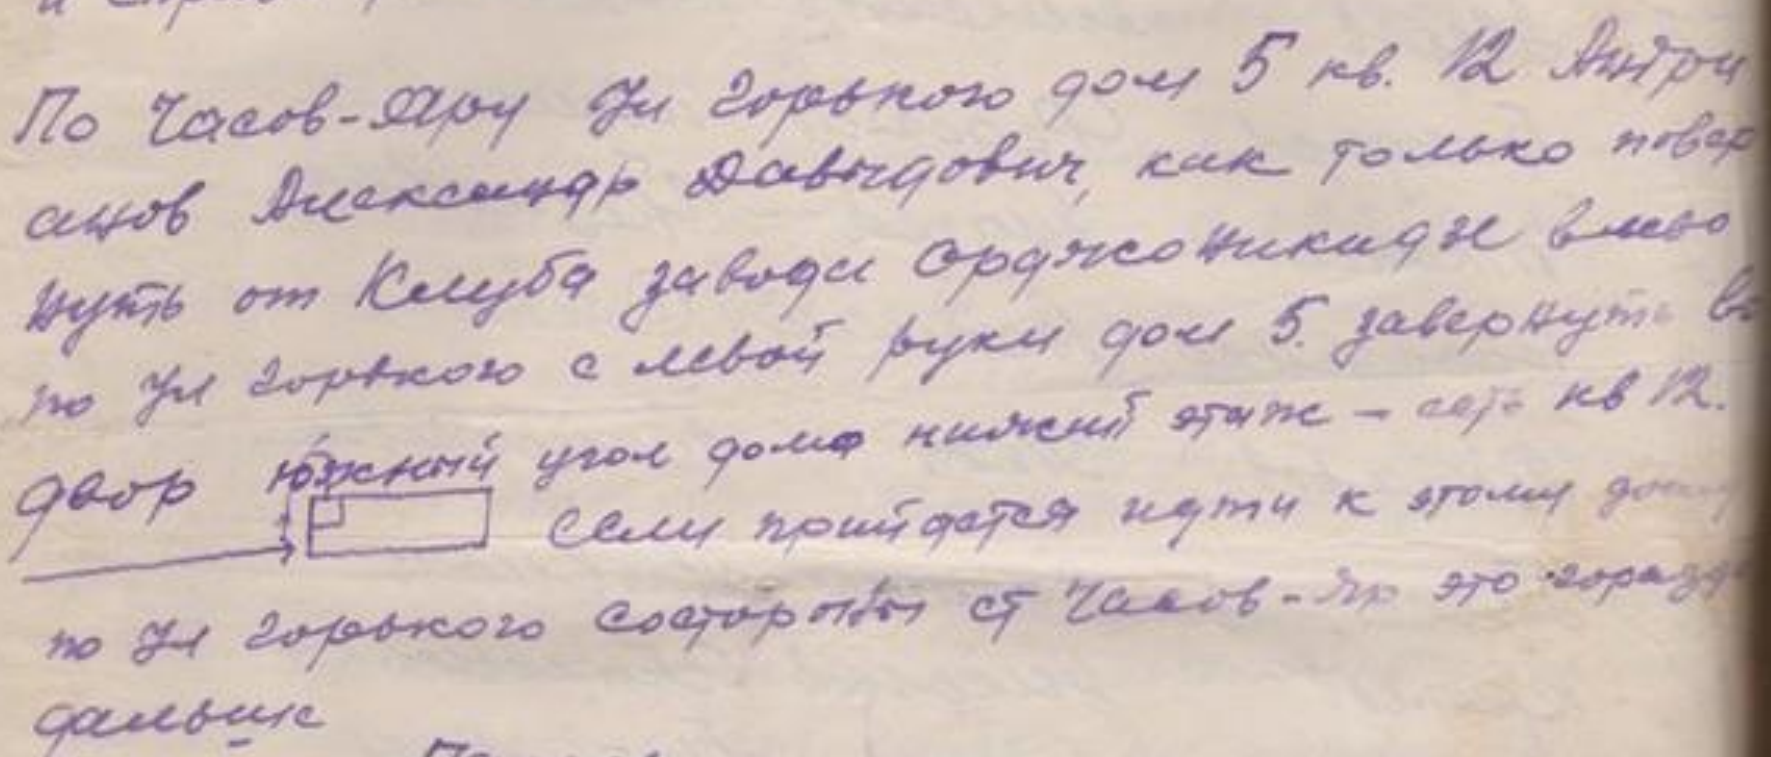 По Часов-Яру Ул Горького дом 5 кв. 12 Антри
анов Александр Давыдович, как только повер
нуть от Клуба завода Орджоникидзе влево
по Ул Горького с левой руки дом 5. завернуть во
двор южный угол дома нижний этаж - кв 12.
если прийдется идти к этому дому
по Ул Горького состороны ст Часов-Яр это гораздо
дальше